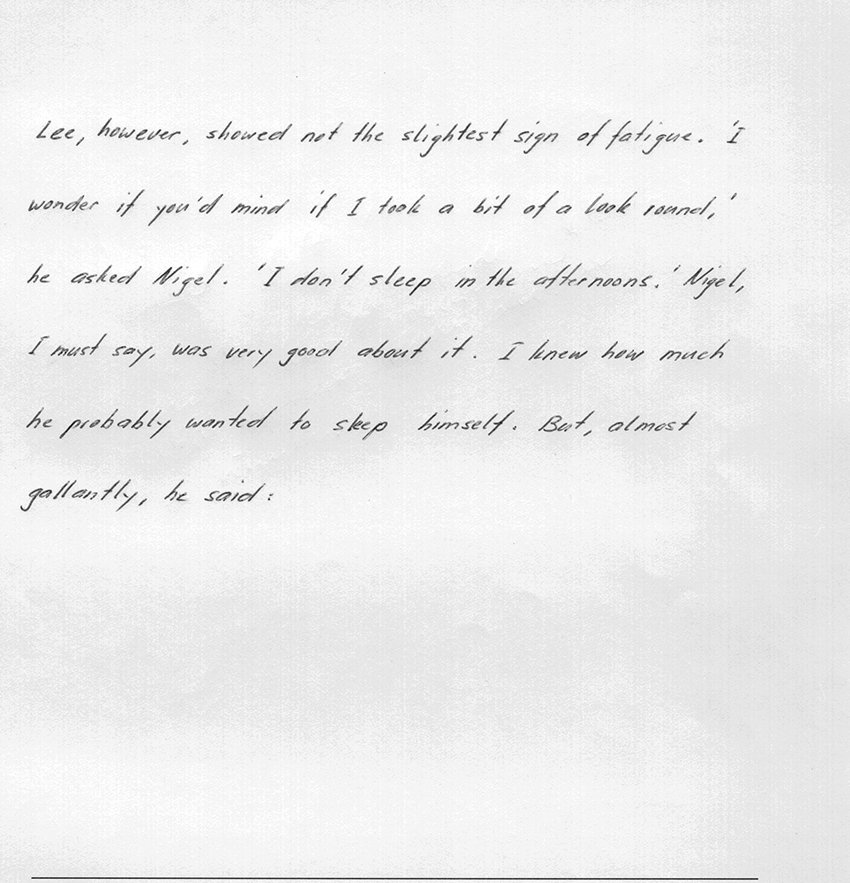 Lee, however, showed not the slightest sign of fatigue. 'I
wonder if you'd mind if I took a bit of a look round,'
he asked Nigel. 'I don't sleep in the afternoons.' Nigel,
I must say, was very good about it. I knew how much
he probably wanted to sleep himself. But, almost
gallantly, he said: